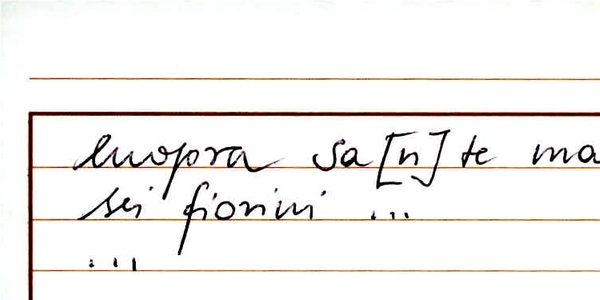 sa[n]te ma
sei fiorini ...
...